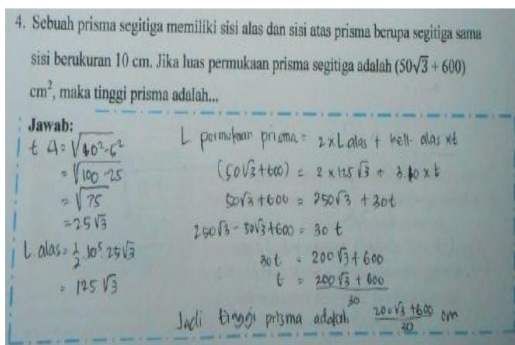 4. Sebuah prisma segitiga memiliki sisi alas dan sisi atas prisma berupa segitiga sama
sisi berukuran 10 cm. Jika luas permukaan prisma segitiga adalah (50√3 + 600)
cm², maka tinggi prisma adalah...
Jawab:
t Δ = √10²-5²
= √100-25
= √75
= 25√3
L alas = 1/2 10⁵ 25√3
= 125 √3
L permukaan prisma = 2 x L alas + kell. alas x t
(50√3 + 600) = 2 x 125 √3 + 3.10 x t
50√3 + 600 = 250√3 + 30t
250√3 - 50√3 + 600 = 30 t
30 t = 200√3 + 600
t = 200√3 + 600 / 30
Jadi tinggi prisma adalah 200√3 + 600 / 30 cm